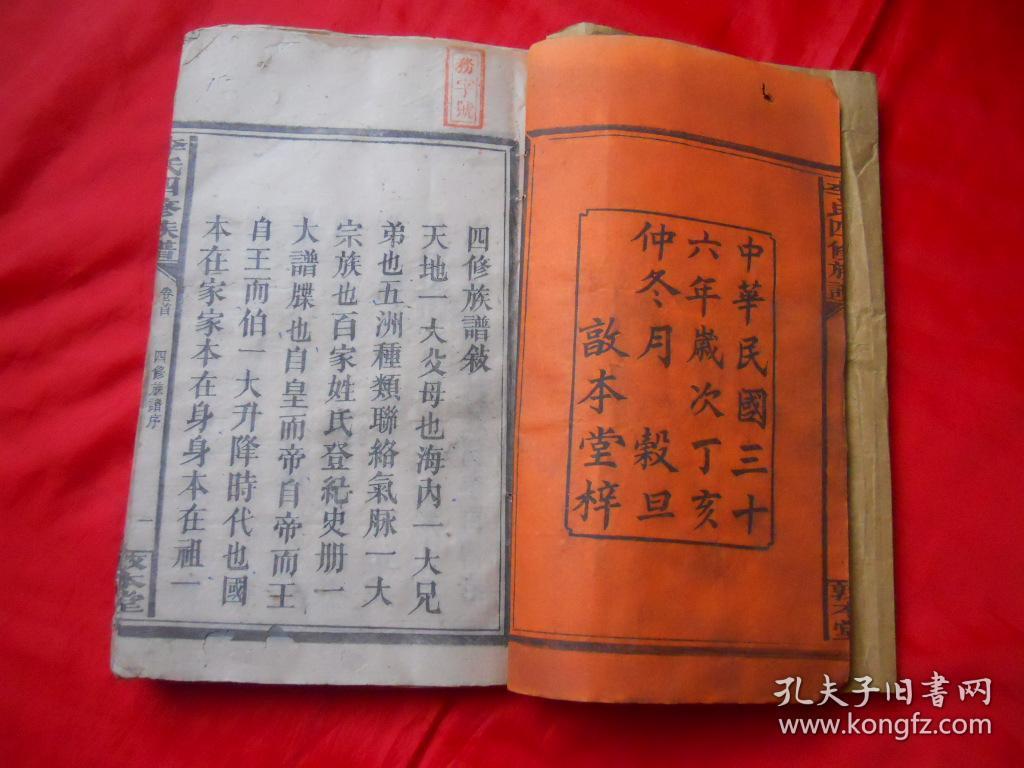 中華民國三十
六年歲次丁亥
仲冬月 穀旦
敦本堂梓
李氏四修族譜
敦本堂
務字號
四修族譜敘
天地一大父母也海內一大兄
弟也五洲種類聯絡氣脉一大
宗族也百家姓氏登紀史册一
大譜牒也自皇而帝自帝而王
自王而伯一大升降時代也國
本在家家本在身身本在祖一
李氏四修族譜 卷首 四修族譜序 一 敦本堂
孔夫子旧书网
www.kongfz.com